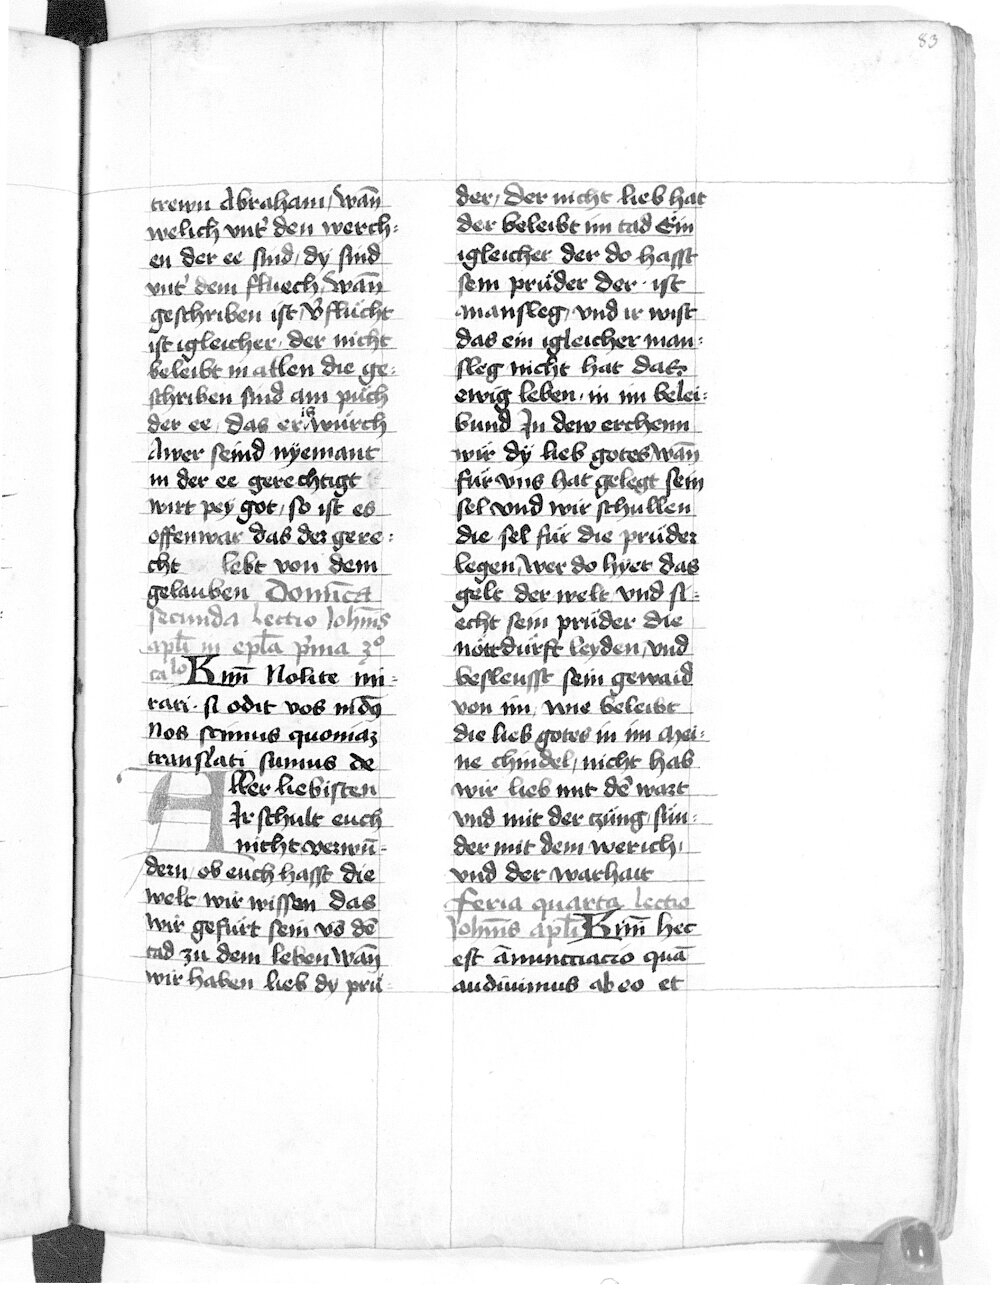 83
trewn Abraham / Wan̄
welich vnt' den werch-
en der ee sind / dy sind
vnt' dem fluech / Wan̄
geschriben ist / v'flücht
ist igleicher / der nicht
beleibt in allen die ge-
schriben sind am püch
der ee / das er is würch
Awer seind nyemant
in der ee gerechtigt
wirt pey got / so ist es
offenwar das der gere-
cht lebt von dem
gelauben Domi̅ca
secunda lectio Joha̅nis
apl̅i in epl̅a p̅ma 3º
ca lo Krm̅ Nolite mi-
rari si odit vos mūdꝰ
Nos scimus quoniaʒ
translati sumus de
Aller liebisten
Jr schult euch
nicht verwū-
dern / ob euch hasst die
welt wir wissen das
wir gefürt sein vō dē
tad zu dem leben Wan̄
wir haben lieb dy prü-
der / Der nicht lieb hat
der beleibt im tad Ein
igleicher der do hasst
sein prüder der ist
mansleg / vnd ir wist
das ein igleicher man-
sleg nicht hat daz
ewig leben in im belei-
bund Jn dew erchenn
wir dy lieb gotes Wan̄
für vns hat gelegt sein
sel vnd wir schullen
die sel für die prüder
legen / Wer do hyet das
gelt der welt vnd si-
echt sein prüder die
nöttdürft leyden / vnd
besleusst sein gewaid
von im / wie beleibt
die lieb gotes in im Mei-
ne chindel / nicht hab
wir lieb mit dē wart
vnd mit der czüng / sün-
der mit dem werich /
vnd der warhait
Feria quarta lectio
Joha̅nis apl̅i Krm̅ hec
est ānuncciacio quā
audiuimus ab eo et